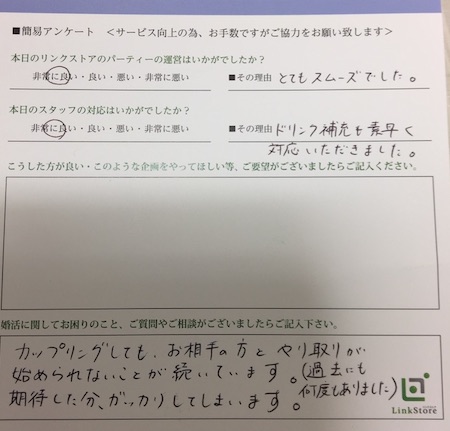 ■簡易アンケート ＜サービス向上の為、お手数ですがご協力をお願い致します＞
本日のリンクストアのパーティーの運営はいかがでしたか？
非常に良い・良い・悪い・非常に悪い ■その理由 とてもスムーズでした。
本日のスタッフの対応はいかがでしたか？
非常に良い・良い・悪い・非常に悪い ■その理由 ドリンク補充も素早く
対応いただきました。
こうした方が良い・このような企画をやってほしい等、ご要望がございましたらご記入ください。
婚活に関してお困りのこと、ご質問やご相談がございましたらご記入下さい。
カップリングしても、お相手の方とやり取りが
始められないことが続いています。(過去にも
何度もありました)
期待した分、ガッカリしてしまいます。
LinkStore